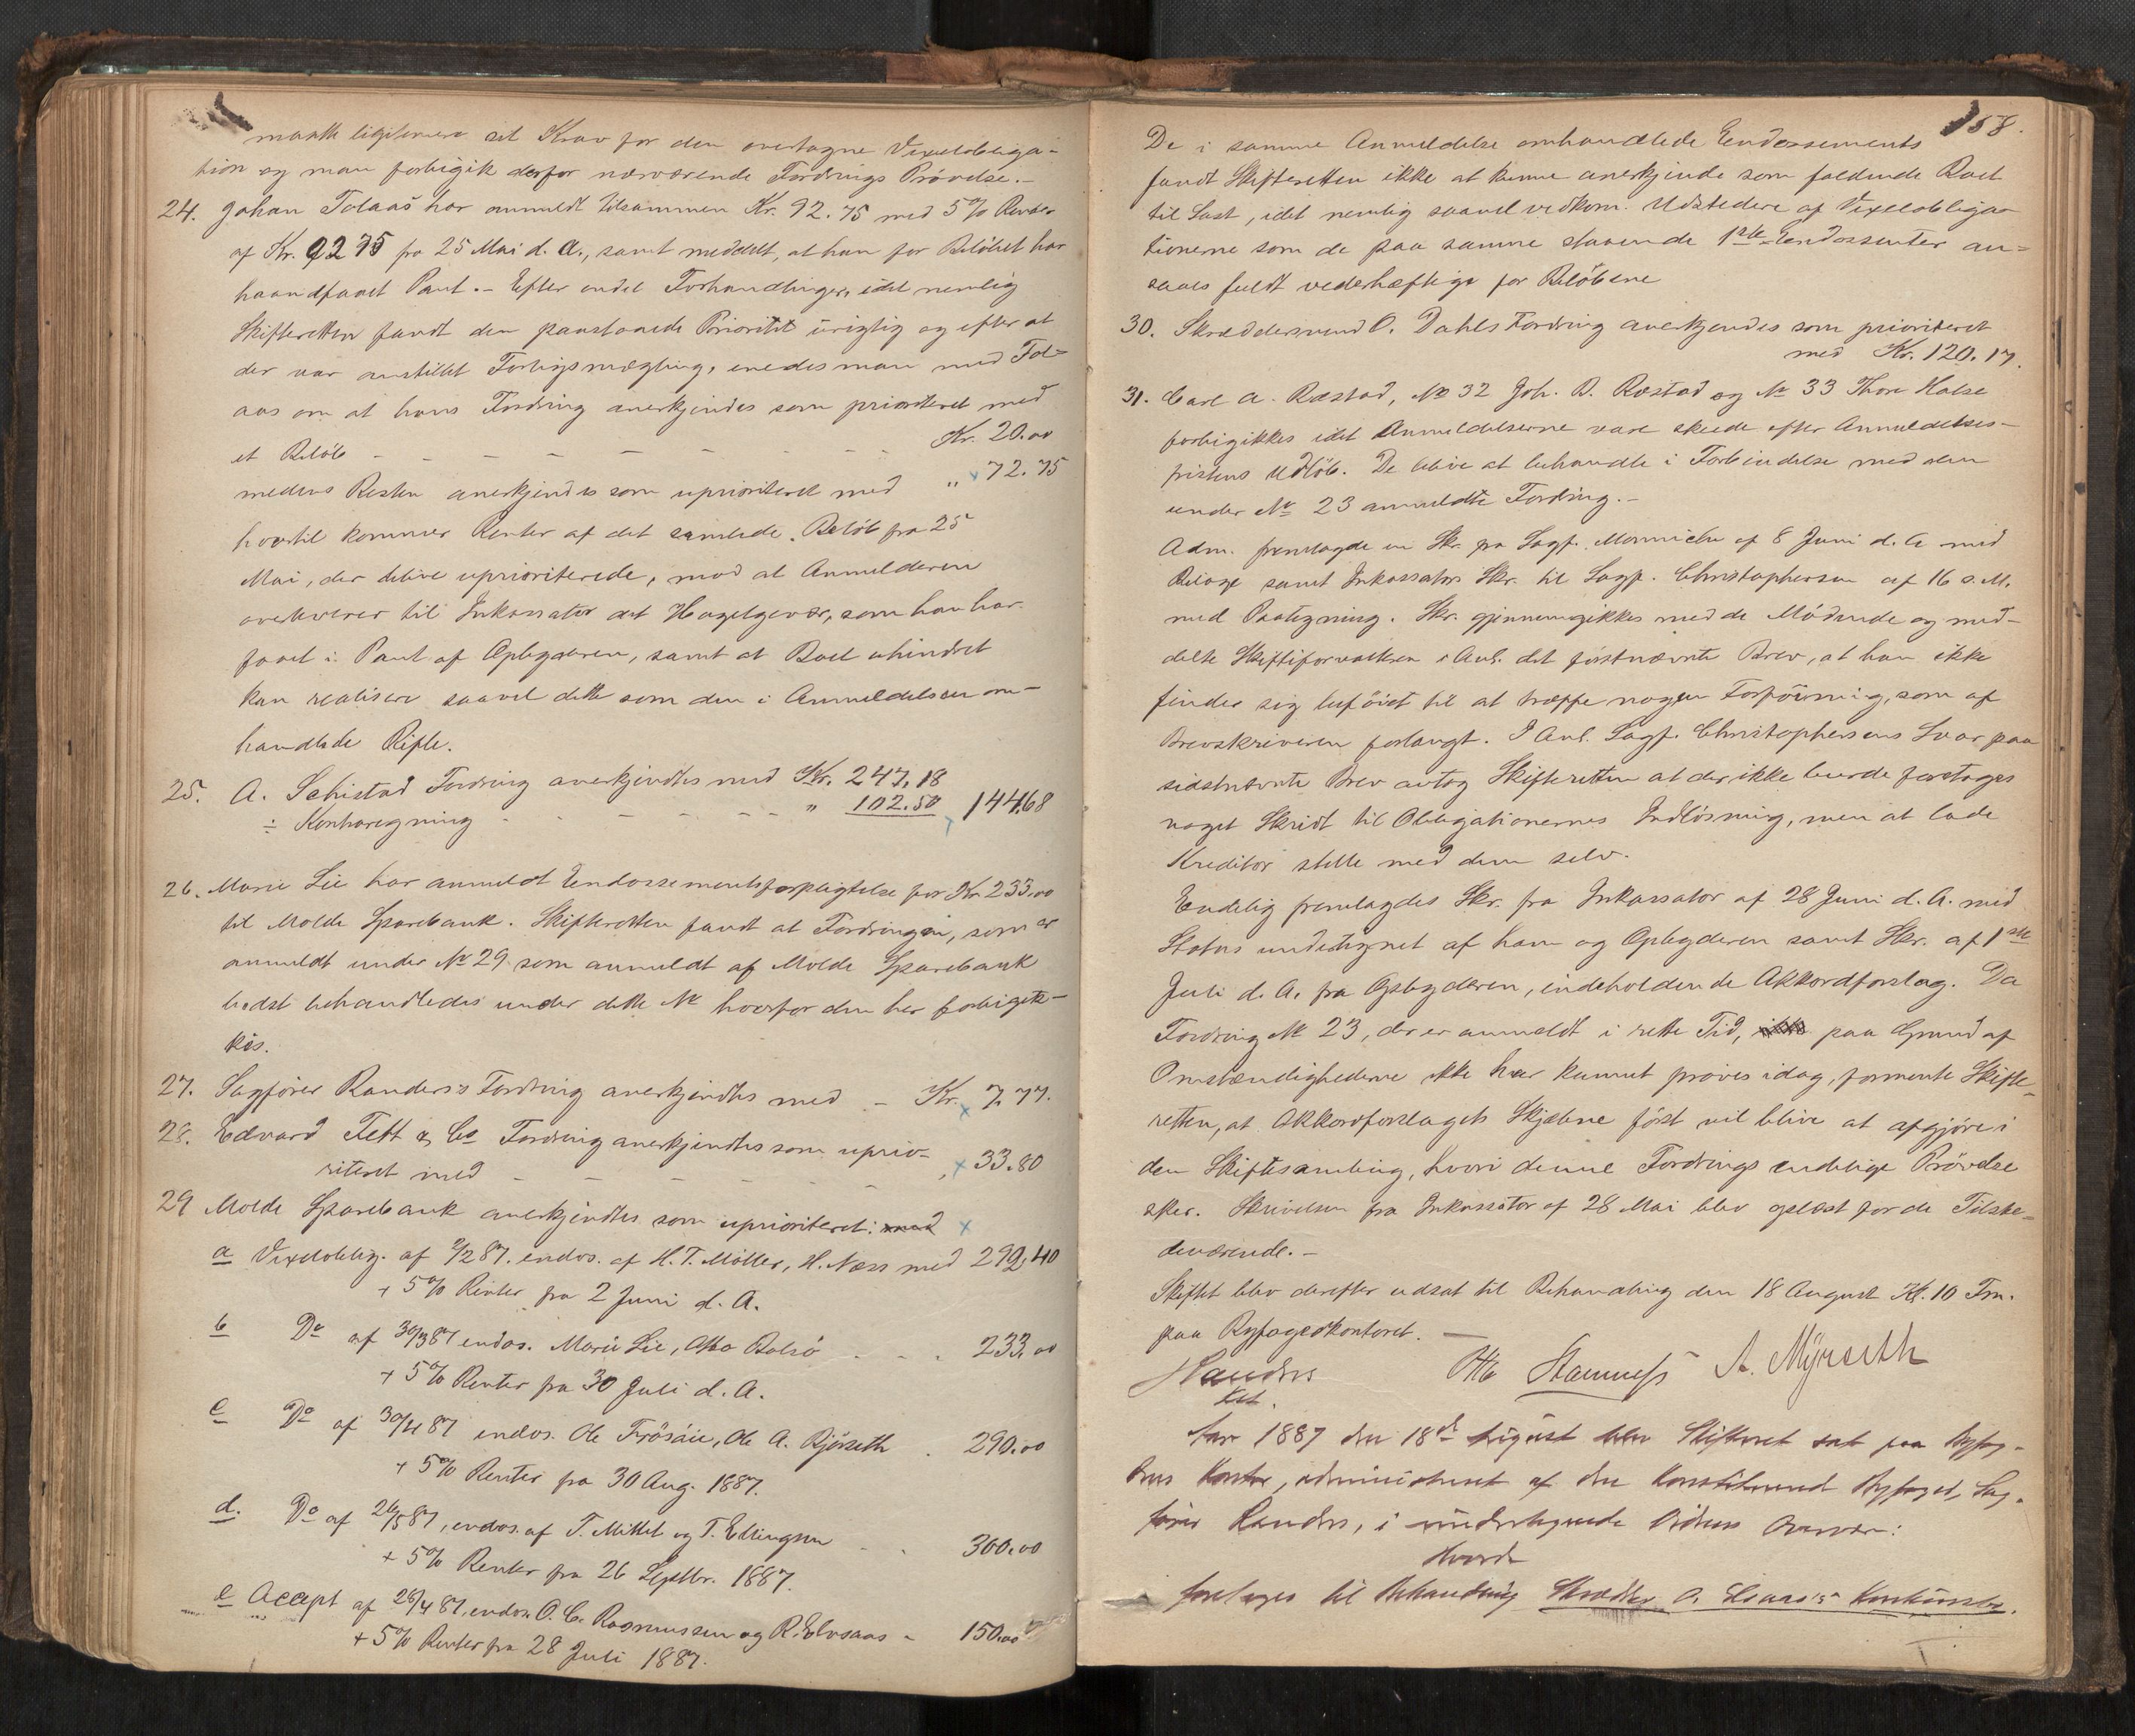 maatte legitimere sit Krav for den overtagne Vexelobliga-
tion og man forbigik derfor nærværende Fordrings Prøvelse.-
24. Johan Tolaas har anmeldt tilsammen Kr. 92.75 med 5% Renter
af Kr. 92 75 fra 25 Mai d. A., samt meddelt, at han for Beløbet har
haandfaaet Pant.- Efter endel Forhandlinger, idet nemlig
Skifteretten fandt den paastaaede Prioritet urigtig og efter at
der var anstillet Forligsmægling, enedes man med Tol-
aas om at hans Fordring anerkjendes som prioriteret med
et Beløb - - - - - - - Kr. 20.00
medens Resten anerkjendes som uprioriteret med „ 72.75
hvortil kommer Renter af det samlede Beløb fra 25
Mai, der blive uprioriterede, mod at Anmelderen
overleverer til Inkassator det Haglgevær, som han har
faaet i Pant af Opbyderen, samt at Boet uhindret
kan realisere saavel dette som den i Anmeldelsen om-
handlede Rifle.
25. A. Sehistad Fordring anerkjendtes med Kr. 247.18
÷ Kontraregning - - - - - „ 102.50 144.68
26. Marie Lie har anmeldt Endossementsforpligtelse for Kr. 233.00
til Molde Sparebank. Skifteretten fandt at Fordringen, som er
anmeldt under № 29 som anmeldt af Molde Sparebank
bedst behandledes under dette № hvorfor den her forbigik-
kes.
27. Sagfører Randers's Fordring anerkjendtes med - Kr. 7.77.
28. Edvard Fett & Co Fordring anerkjendtes som uprio-
riteret med - - - - - - „ 33.80
29 Molde Sparebank anerkjendtes som uprioriteret: med
a Vexeloblig. af 2/2 87. endos. af H. T. Møller, H. Næss med 292,40
+ 5% Renter fra 2 Juni d. A.
b Do af 30/3 87 endos. Marie Lie, Otto Bolsø - - - 233.00
+ 5% Renter fra 30 Juli d. A.
c Do af 30/4 87 endos. Ole Frøsaie, Ole A. Bjørseth - 290.00
+ 5% Renter fra 30 Aug. 1887.
d. Do af 26/5 87, endos. af T. Mittet og T. Edlingsen - - 300.00
+ 5% Renter fra 26 Septbr. 1887.
e Accept af 28/4 87, endos. O. C. Rasmussen og R. Elvsaas - 150.00
+ 5% Renter fra 28 Juli 1887.
158.
De i samme Anmeldelse omhandlede Endossements
fandt Skifteretten ikke at kunne anerkjende som faldende Boet
til Last, idet nemlig saavel vedkom. Udstedere af Vexelobliga-
tionerne som de paa samme staaende 1ste Endossenter an-
saaes fuldt vederhæftige for Beløbene
30. Skræddersvend O. Dahls Fordring anerkjendes som prioriteret
med Kr. 120.17.
31. Carl A. Ræstad, № 32 Joh. B. Ræstad og № 33 Thore Halse
forbigikkes idet Anmeldelserne vare skeede efter Anmeldelses-
fristens Udløb. De blive at behandle i Forbindelse med den
under № 23 anmeldte Fordring.-
Adm. fremlagde en Skr. fra Sagf. Monnichen af 8 Juni d. A. med
Bilage samt Inkassators Skr. til Sagf. Christophersen af 16 s. M.
med Paategning. Skr. gjennemgikkes med de Mødende og med-
delte Skifteforvalteren i Anl. det førstnævnte Brev, at han ikke
finder sig beføiet til at træffe nogen Forføining, som af
Brevskriveren forlangt. I Anl. Sagf. Christophersens Svar paa
sidstnævnte Brev antog Skifteretten at der ikke burde foretages
noget Skridt til Obligationernes Indløsning, men at lade
Kreditor stelle med dem selv.
Endelig fremlagdes Skr. fra Inkassator af 28 Juni d. A. med
Status undertegnet af ham og Opbyderen samt Skr. af 1ste
Juli d. A. fra Opbyderen, indeholdende Akkordforslag. Da
Fordring № 23, der er anmeldt i rette Tid, paa Grund af
Omstændighederne ikke har kunnet prøves idag, formente Skifte-
retten, at Akkordforslagets Skjæbne først vil blive at afgjøre i
den Skiftesamling, hvori denne Fordrings endelige Prøvelse
sker. Skrivelsen fra Inkassator af 28 Mai blev oplæst for de Tilste-
deværende.-
Skiftet blev derefter udsat til Behandling den 18 August Kl. 10 Fm.
paa Byfogedkontoret. -
Randers Otto Stamness A. Myrseth
kst.
Aar 1887 den 18de August blev Skifteret sat paa Byfog-
dens Kontor, administreret af den konstituerede Byfoged, Sag-
fører Randers, i undertegnede Vidners Overvær:
Hvorda
foretages til Behandling Skrædder O. Elvsaas's Konkursbo.